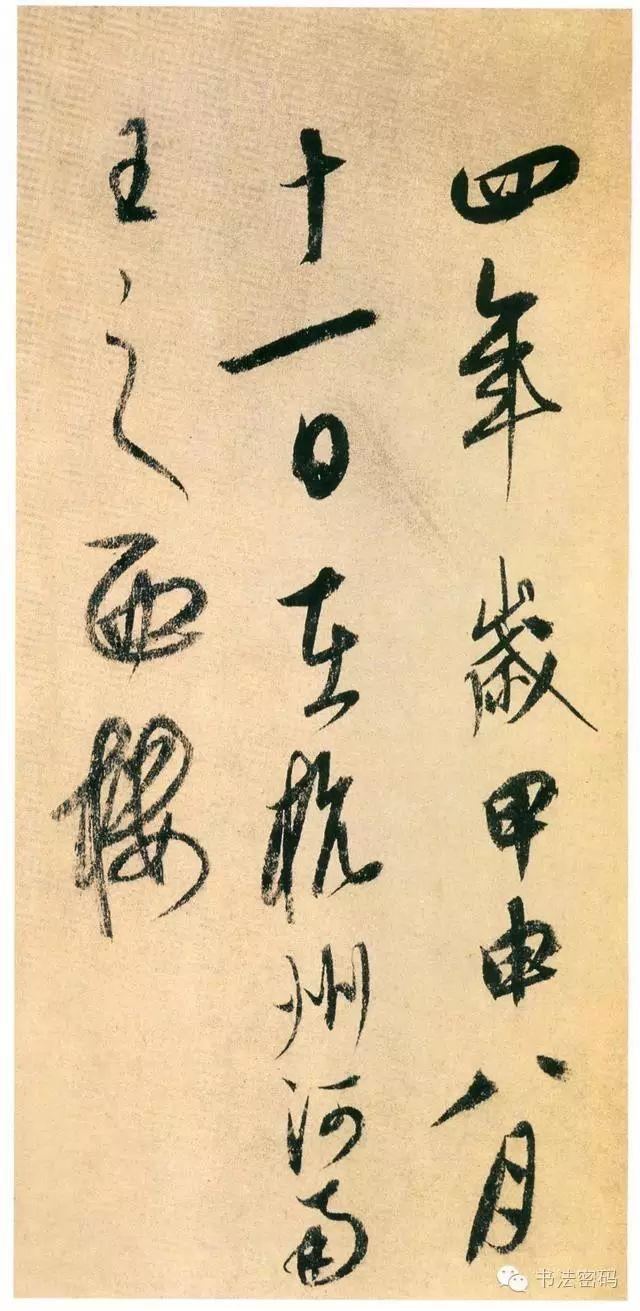 四年歲甲申八月
十一日在杭州河南
王之西樓
书法密码